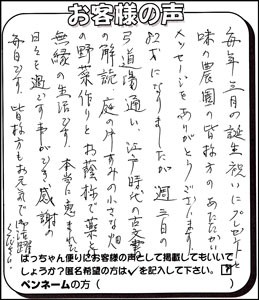 お客様の声
毎年三月の誕生祝いにプレゼントと
味の農園の皆様方のあたたかい
メッセージをありがとうございます
82才になりましたが週三日の
弓道場通い、江戸時代の古文書
の解読、庭のすみの小さな畑
の野菜作りとお蔭様で薬と
無縁の生活です。本当に恵まれた
日々を過す事ができ、感謝の
毎日です。皆様方もお元気で御活躍
ください。
ばっちゃん便りにお客様の声として掲載してもいいで
しょうか？匿名希望の方は✓を記入して下さい。
ペンネームの方（　　　　　　　）